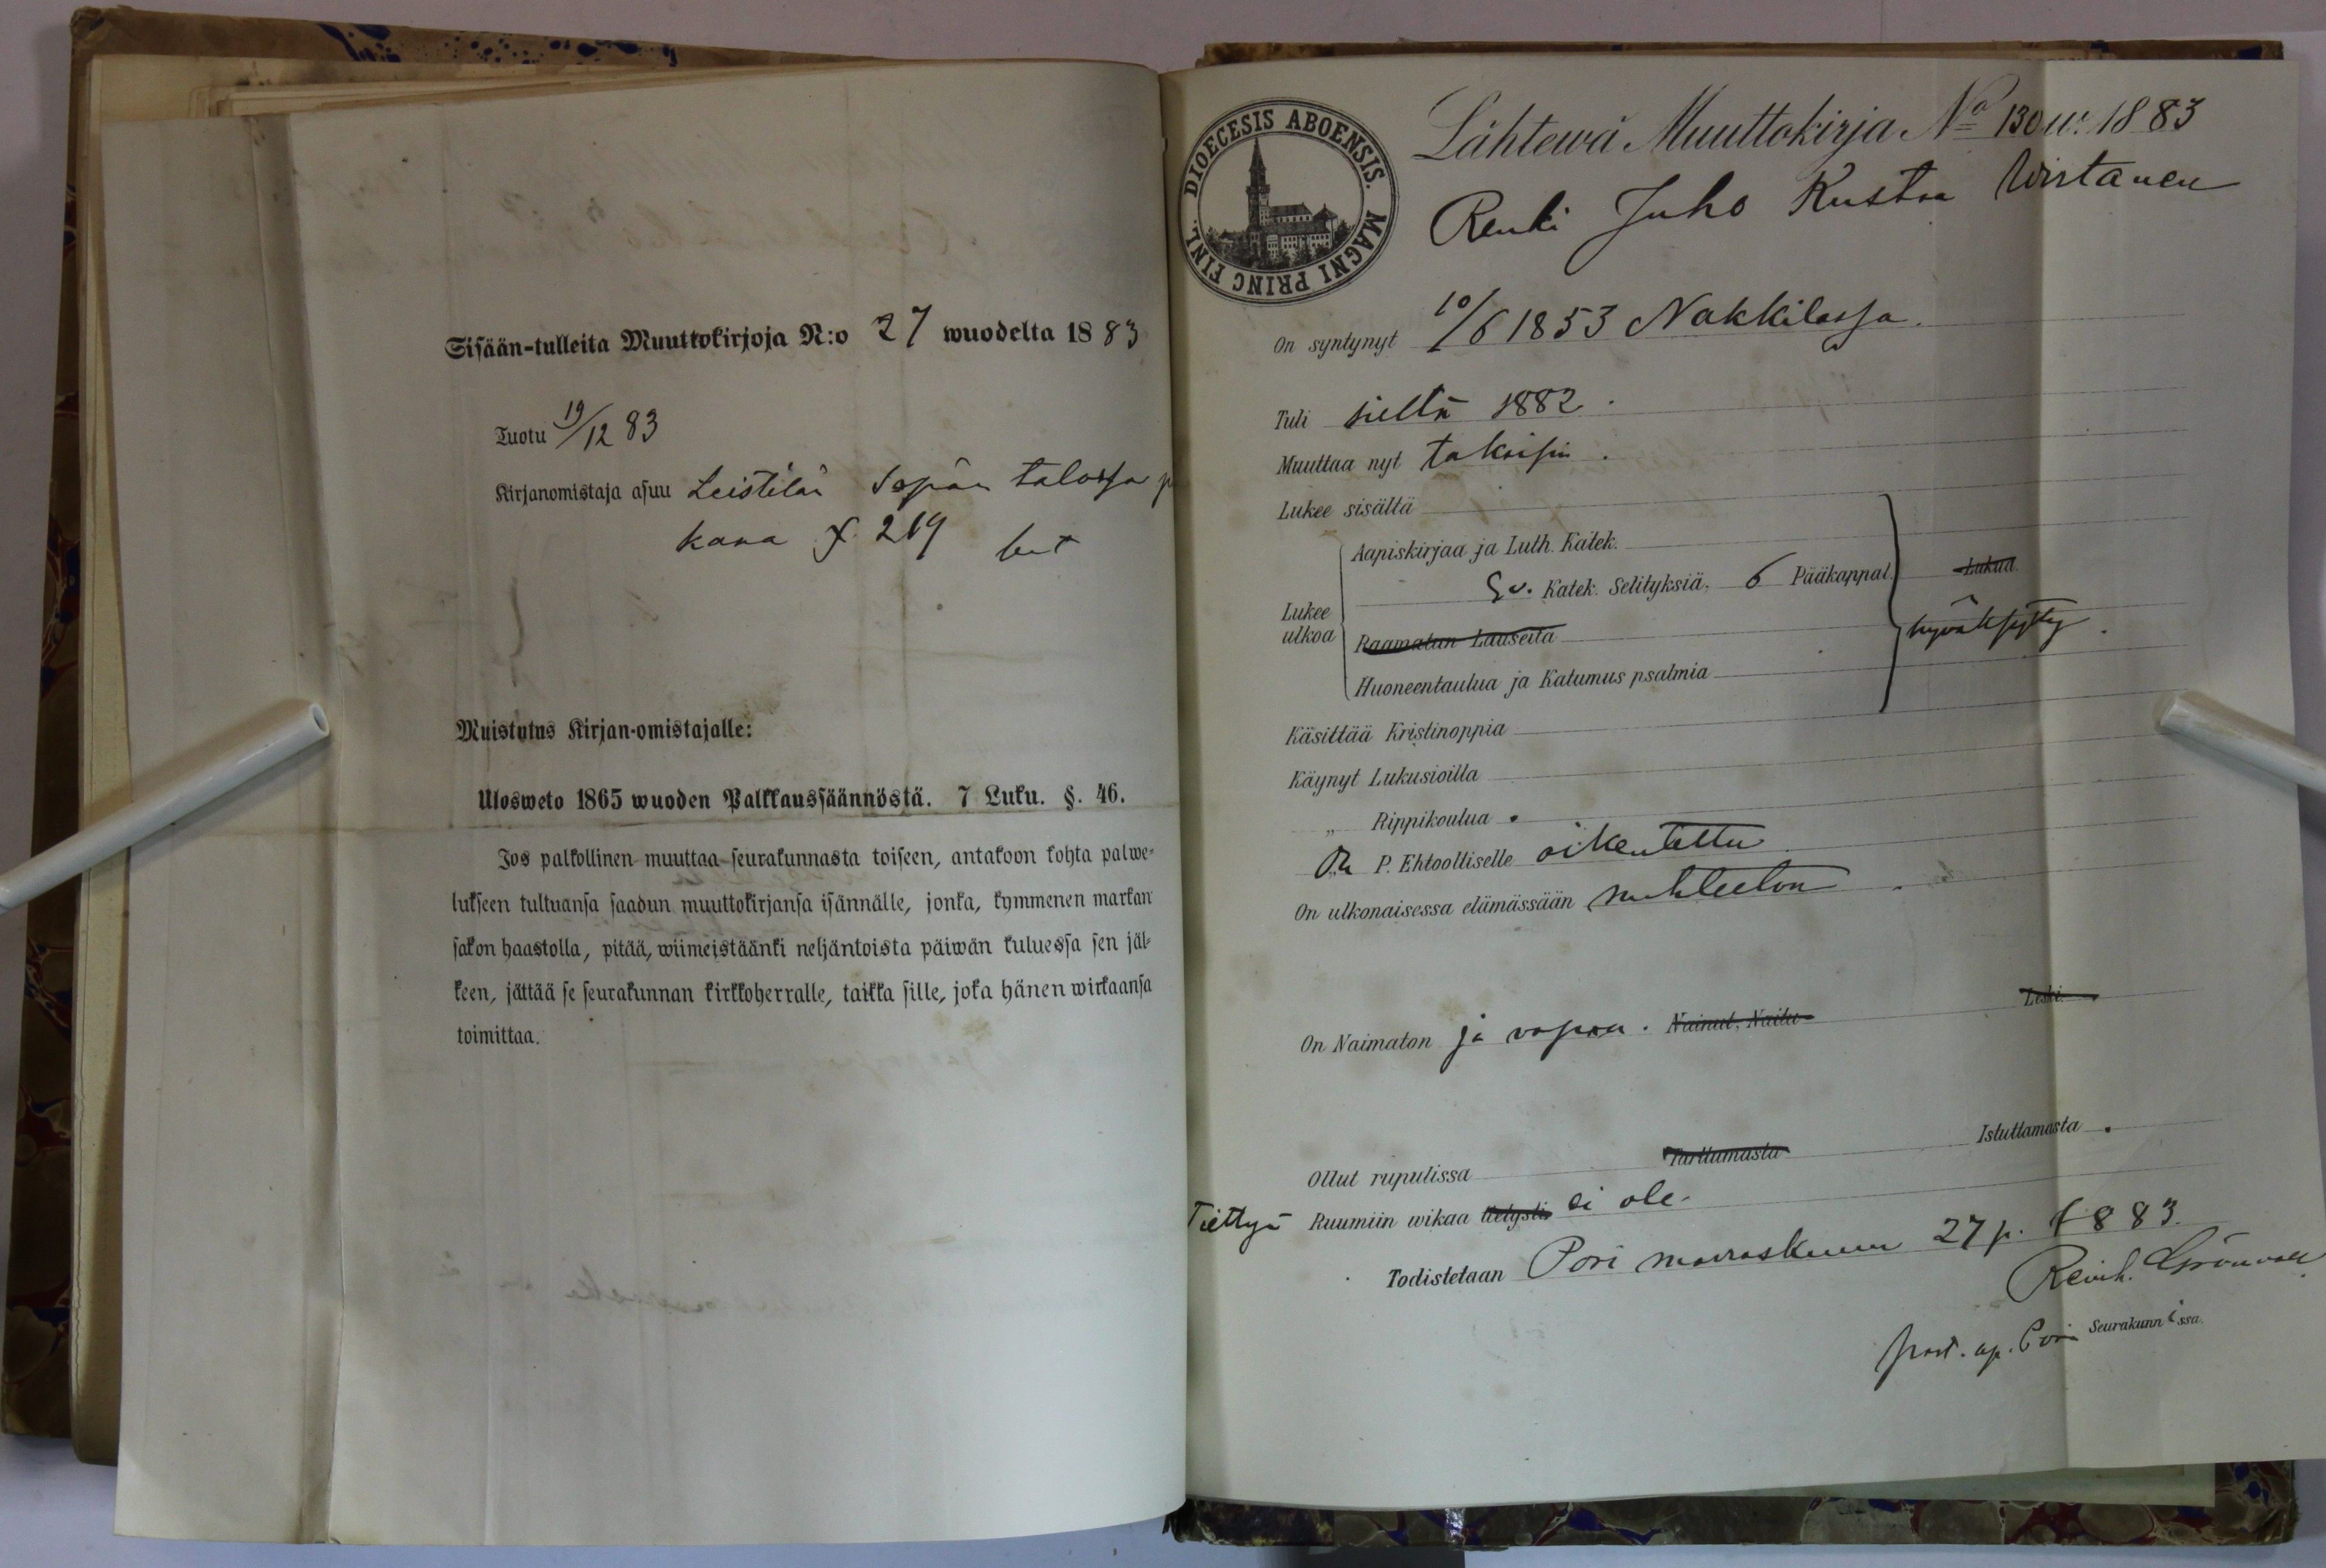 Sisään-tulleita Muuttokirjoja N:o 27 wuodelta 1883
Tuotu 19/12 83
Kirjanomistaja asuu Leistilän Sepän talossa
kana f. 219
Muistutus Kirjan-omistajalle:
Ulosweto 1865 wuoden Palkkaussäännöstä. 7 Luku. §. 46.
Jos palkollinen muuttaa seurakunnasta toiseen, antakoon kohta palwe-
lukseen tultuansa saadun muuttokirjansa isännälle, jonka, kymmenen markan
sakon haastolla, pitää, wiimeistäänki neljäntoista päiwän kuluessa sen jäl-
keen, jättää se seurakunnan kirkkoherralle, taikka sille, joka hänen wirkaansa
toimittaa.
DIOECESIS ABOENSIS. MAGNI PRINC FINL.
Lähtewä Muuttokirja No 130 w. 1883
Renki Juho Kustaa Wirtanen
On syntynyt 10/6 1853 Nakkilassa.
Tuli sieltä 1882.
Muuttaa nyt takaisin.
Lukee sisältä
Lukee ulkoa
Aapiskirjaa ja Luth. Katek.
Sv. Katek. Selityksiä, 6 Pääkappal. Lukua.
Raamatun Lauseita hyväksytty.
Huoneentaulua ja Katumus psalmia
Käsittää Kristinoppia
Käynyt Lukusioilla
„ Rippikoulua
On P. Ehtoolliselle oikeutettu
On ulkonaisessa elämässään nuhteeton
On Naimaton ja vapaa. Nainut, Naitu Leski
Ollut rupulissa Tarttumasta Istuttamasta.
Tiettyä Ruumiin wikaa ei ole.
Todistetaan Pori marraskuun 27 p. 1883.
Reinh. Grönvall
past. ap. Pori Seurakunnissa.